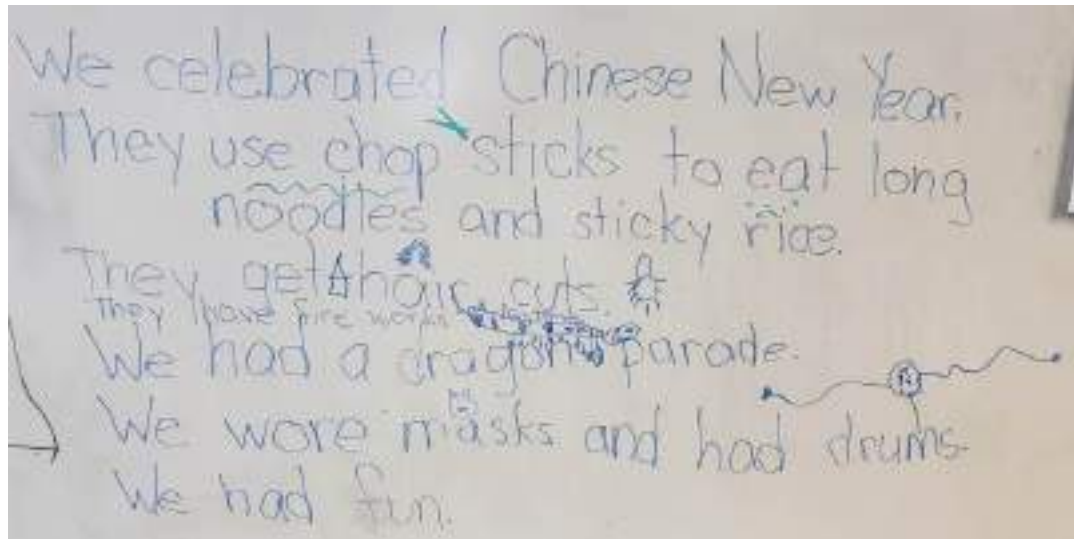 We celebrated Chinese New Year.
They use chop sticks to eat long
noodles and sticky rice.
They get hair cuts.
They have fire works
We had a dragon parade.
We wore masks and had drums.
We had fun.